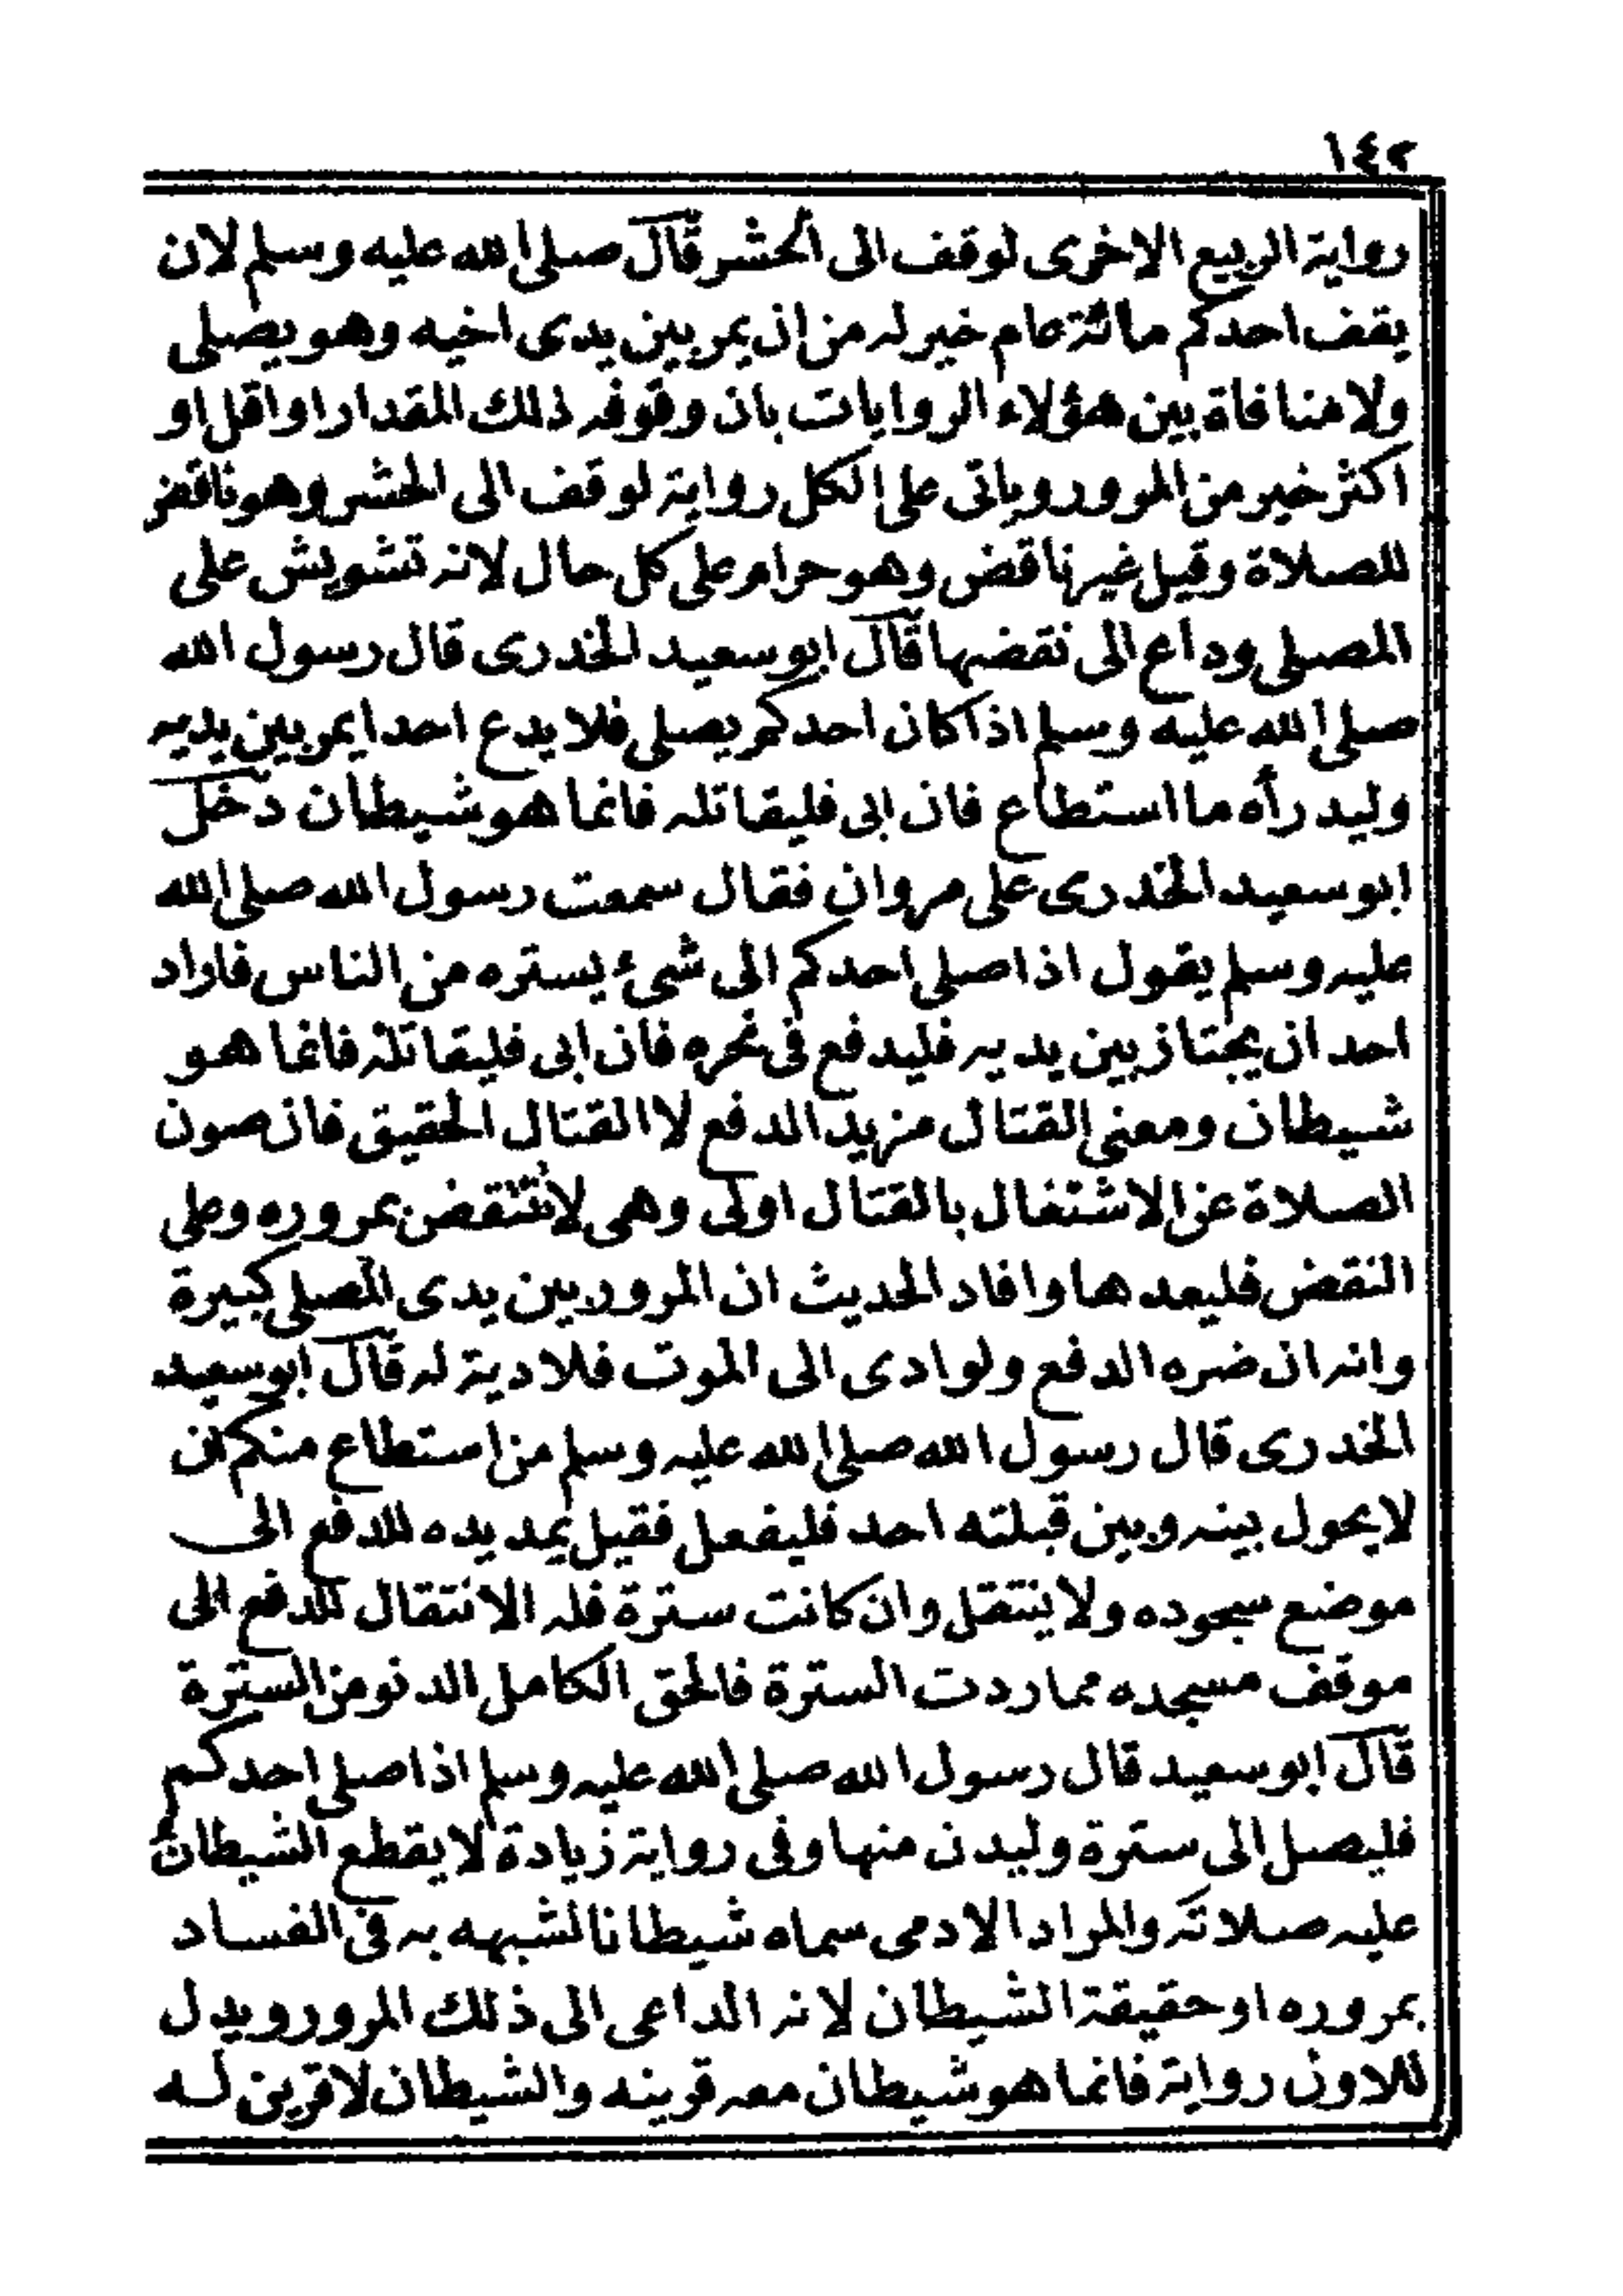 ١٤٢
رواية الربيع الاخرى لوقف الى الحشر قال صلى الله عليه وسلم لان
يقف احدكم مائة عام خير له من ان يمر بين يدى اخيه وهو يصلى
ولا منافاة بين هؤلاء الروايات بان وقوفه ذلك المقدار او اقل او
اكثر خير من المرور وياتى على الكل رواية لوقف الى الحشر وهو ناقض
للصلاة وقيل غير ناقض وهو حرام على كل حال لانه تشويش على
المصلى وداع الى نقضها قال ابو سعيد الخدرى قال رسول الله
صلى الله عليه وسلم اذا كان احدكم يصلى فلا يدع احدا يمر بين يديه
وليدرأه ما استطاع فان ابى فليقاتله فانما هو شيطان دخل
ابو سعيد الخدرى على مروان فقال سمعت رسول الله صلى الله
عليه وسلم يقول اذا صلى احدكم الى شئ يستره من الناس فاراد
احد ان يجتاز بين يديه فليدفع فى نحره فان ابى فليقاتله فانما هو
شيطان ومعنى القتال مزيد الدفع لا القتال الحقيق فان صون
الصلاة عن الاشتغال بالقتال اولى وهى لا تنتقض بمروره وعلى
النقض فليعدها وافاد الحديث ان المرور بين يدى المصلى كبيرة
وانه ان ضره الدفع ولو ادى الى الموت فلا دية له قال ابو سعيد
الخدرى قال رسول الله صلى الله عليه وسلم من استطاع منكم ان
لا يحول بينه وبين قبلته احد فليفعل فقيل يمد يده للدفع الى
موضع سجوده ولا ينتقل وان كانت سترة فله الانتقال للدفع الى
موقف مسجده مما ردت السترة فالحق الكامل الدنو من السترة
قال ابو سعيد قال رسول الله صلى الله عليه وسلم اذا صلى احدكم
فليصل الى سترة وليدن منها وفى رواية زيادة لا يقطع الشيطان
عليه صلاته والمراد الادمى سماه شيطانا لشبهه به فى الفساد
بمروره او حقيقة الشيطان لانه الداعى الى ذلك المرور ويدل
للاول رواية فانما هو شيطان معه قرينه والشيطان لا قرين له